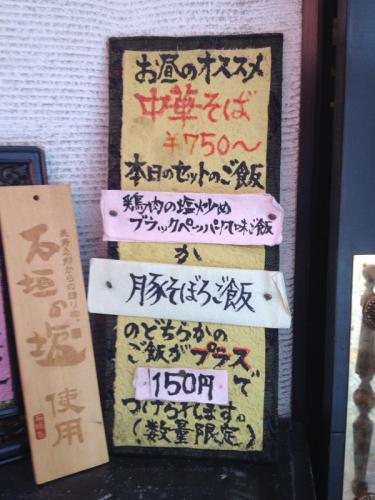 お昼のオススメ
中華そば
¥750〜
本日のセットのご飯
鶏肉の塩炒め
ブラックペッパー風味ご飯
か
月豚そぼろご飯
のどちらかの
ご飯がプラス
150円で
つけられます。
(数量限定)
長寿之郷からの贈り物。
石垣の塩
使用